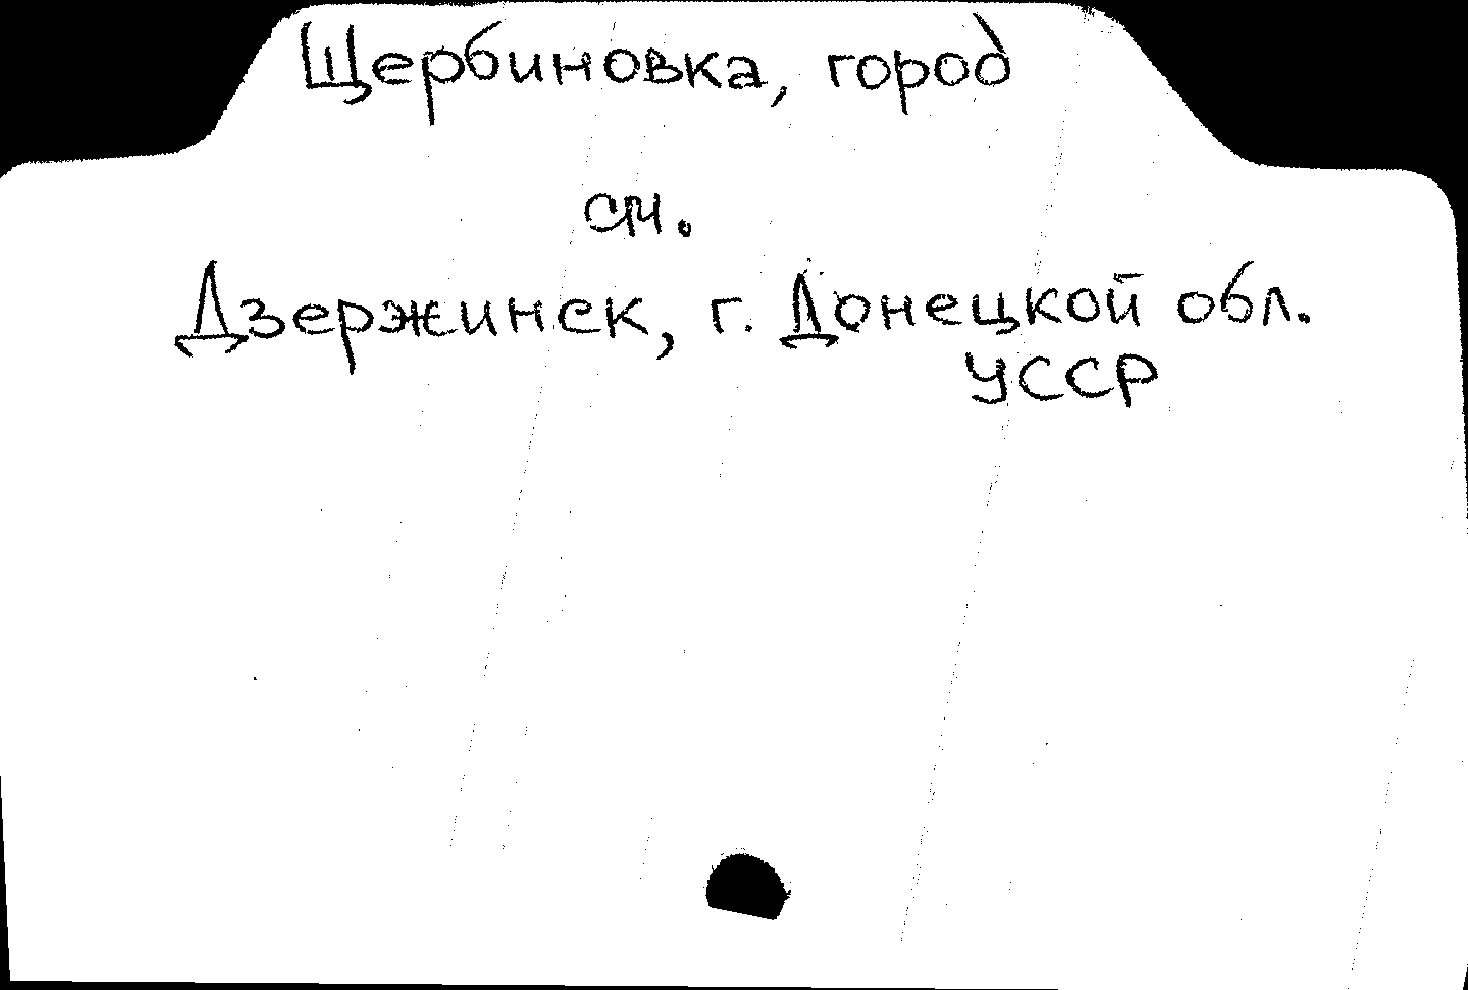 Щербиновка, город
см.
Дзержинск, г. Донецкой обл.
УССР